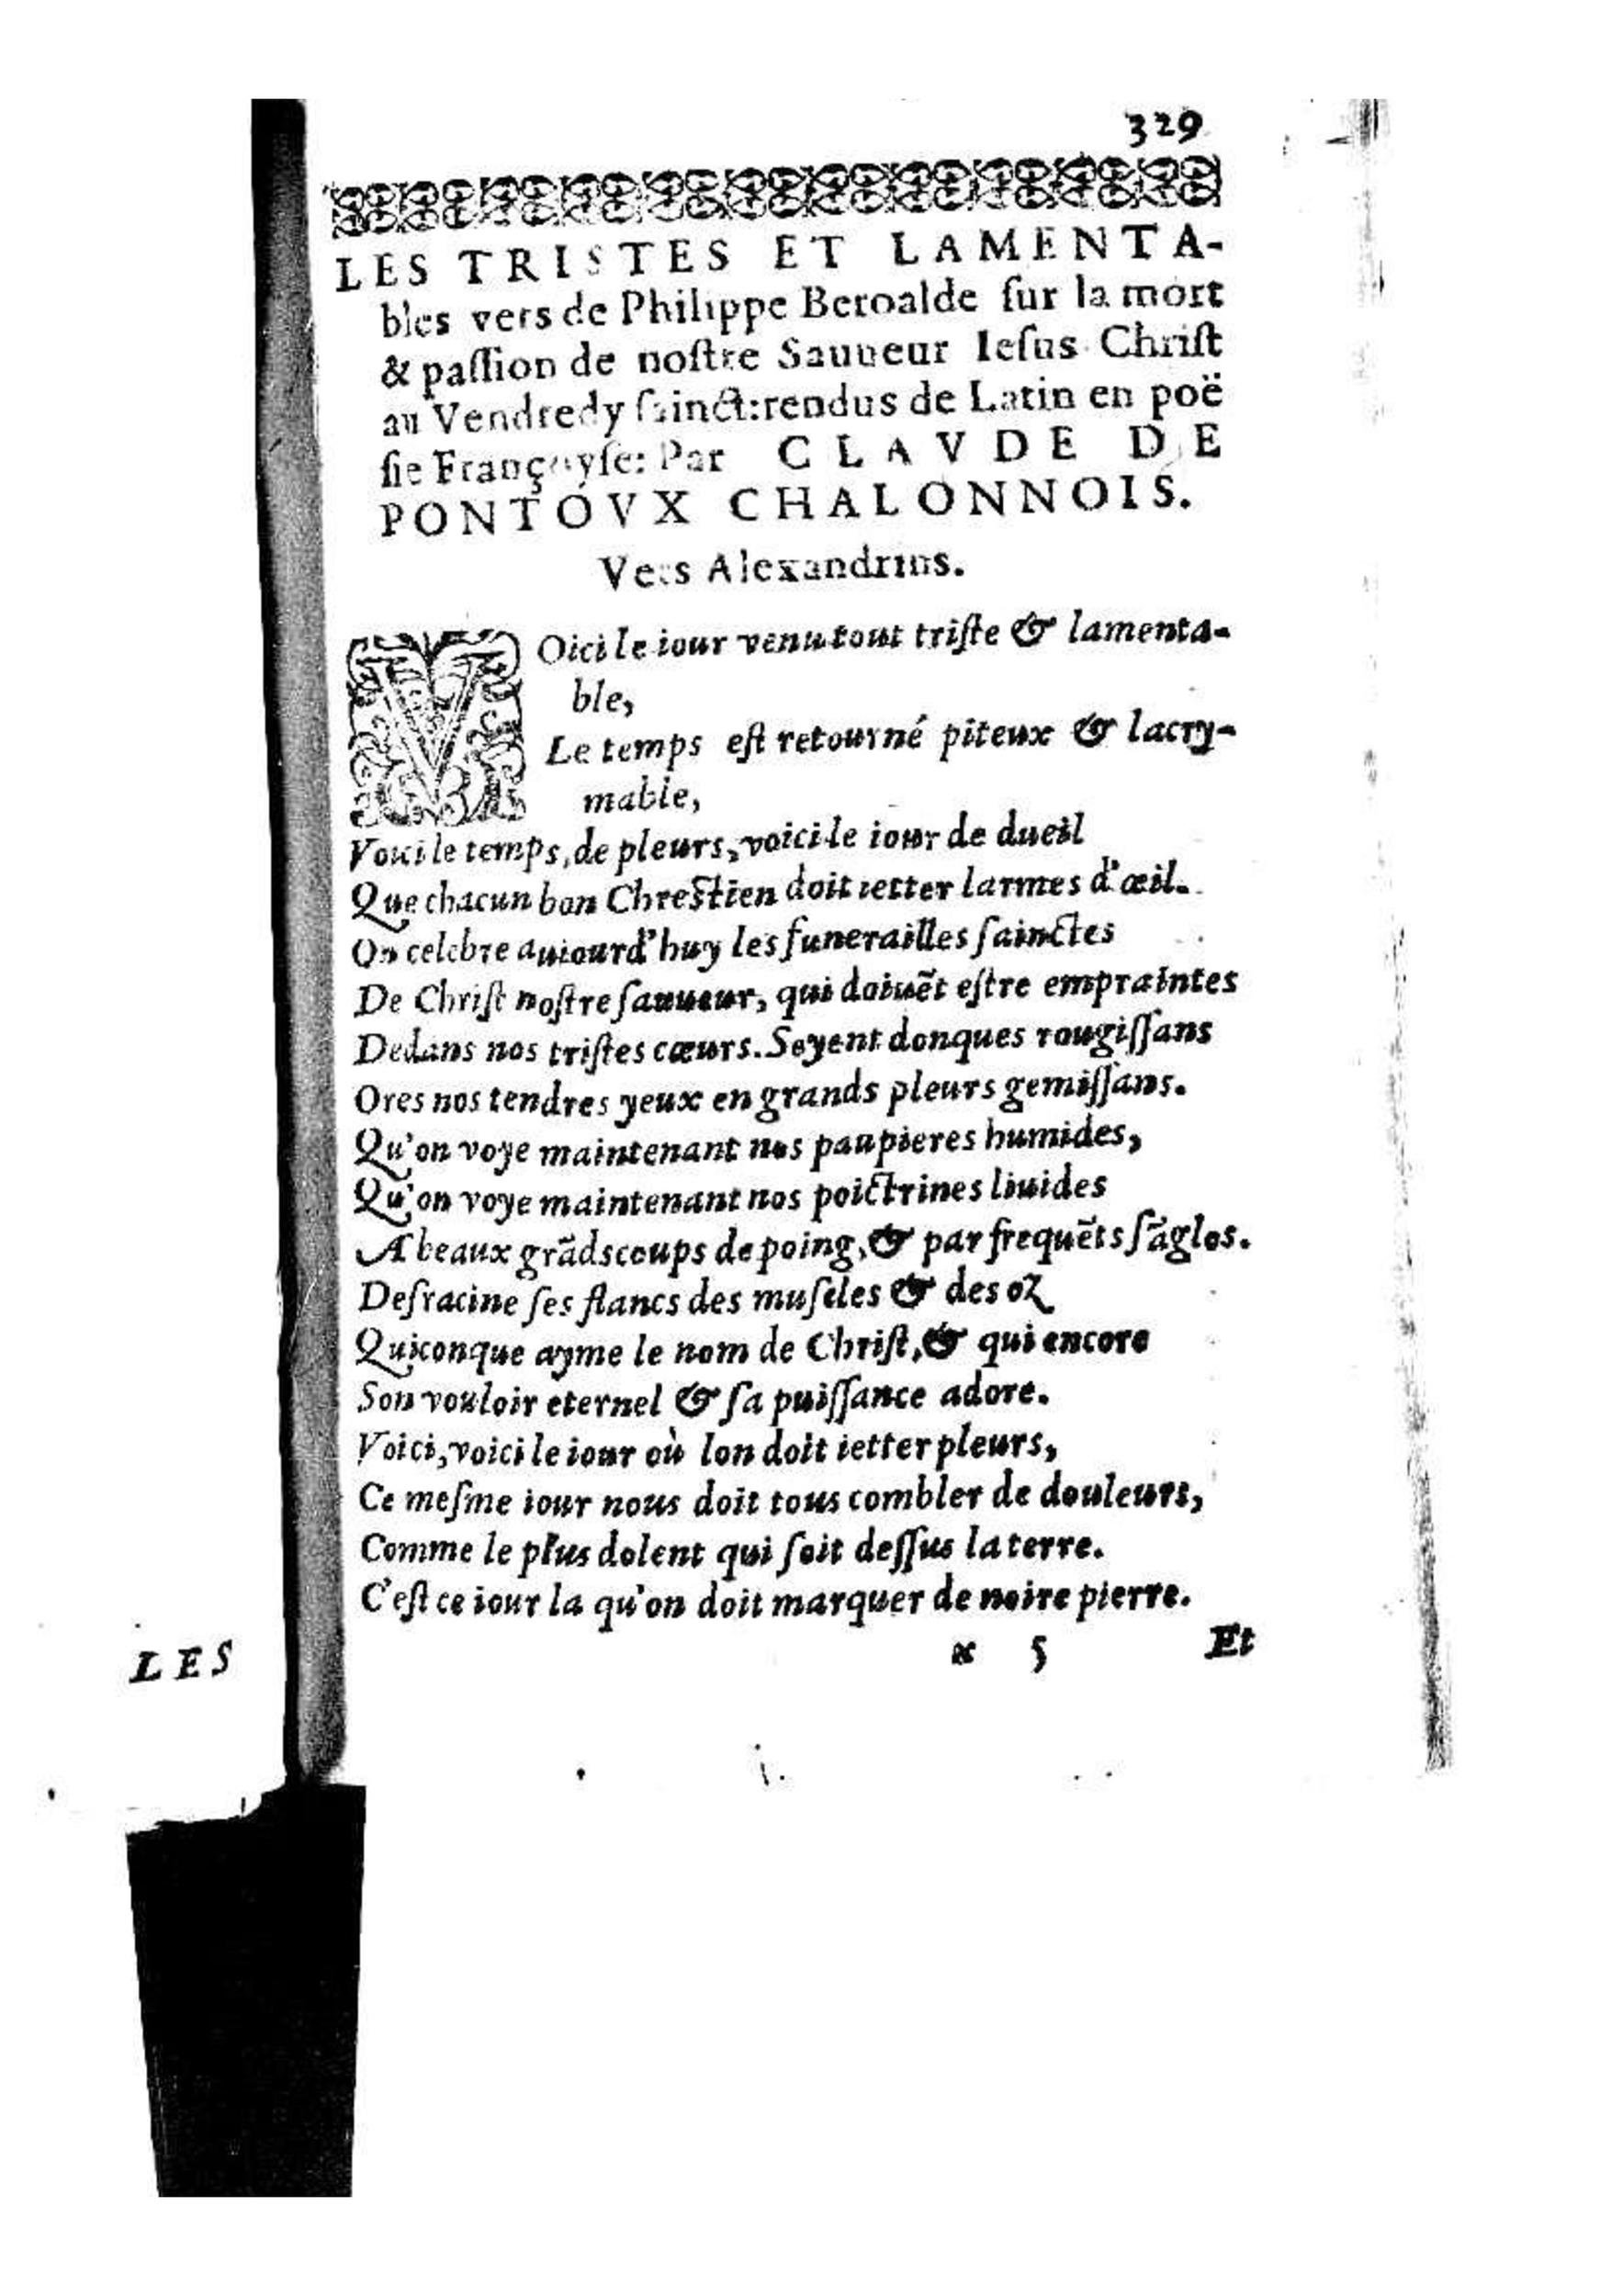 329
LES TRISTES ET LAMENTA-
bles vers de Philippe Beroalde ſur la mort
& paſſion de noſtre Sauueur Ieſus Chriſt
au Vendredy ſainct:rendus de Latin en poë
ſie Françoyſe: Par CLAVDE DE
PONTOVX CHALONNOIS.
Vers Alexandrins.
VOici le iour venu tout triſte & lamenta-
ble,
Le temps eſt retourné piteux & lacry-
mable,
Voici le temps, de pleurs, voici le iour de dueil
Que chacun bon Chreſtien doit ietter larmes d'œil.
On celebre auiourd'huy les funerailles ſainctes
De Chriſt noſtre ſauueur, qui doiuẽt eſtre empraintes
Dedans nos triſtes cœurs. Soyent donques rougiſſans
Ores nos tendres yeux en grands pleurs gemiſſans.
Qu'on voye maintenant nos paupieres humides,
Qu'on voye maintenant nos poictrines liuides
A beaux grãds coups de poing, & par frequẽts ſãglos.
Deſracine ſes flancs des muſcles & des oz
Quiconque ayme le nom de Chriſt, & qui encore
Son vouloir eternel & ſa puiſſance adore.
Voici, voici le iour où lon doit ietter pleurs,
Ce meſme iour nous doit tous combler de douleurs,
Comme le plus dolent qui ſoit deſſus la terre.
C'eſt ce iour la qu'on doit marquer de noire pierre.
* 5 Et
LES